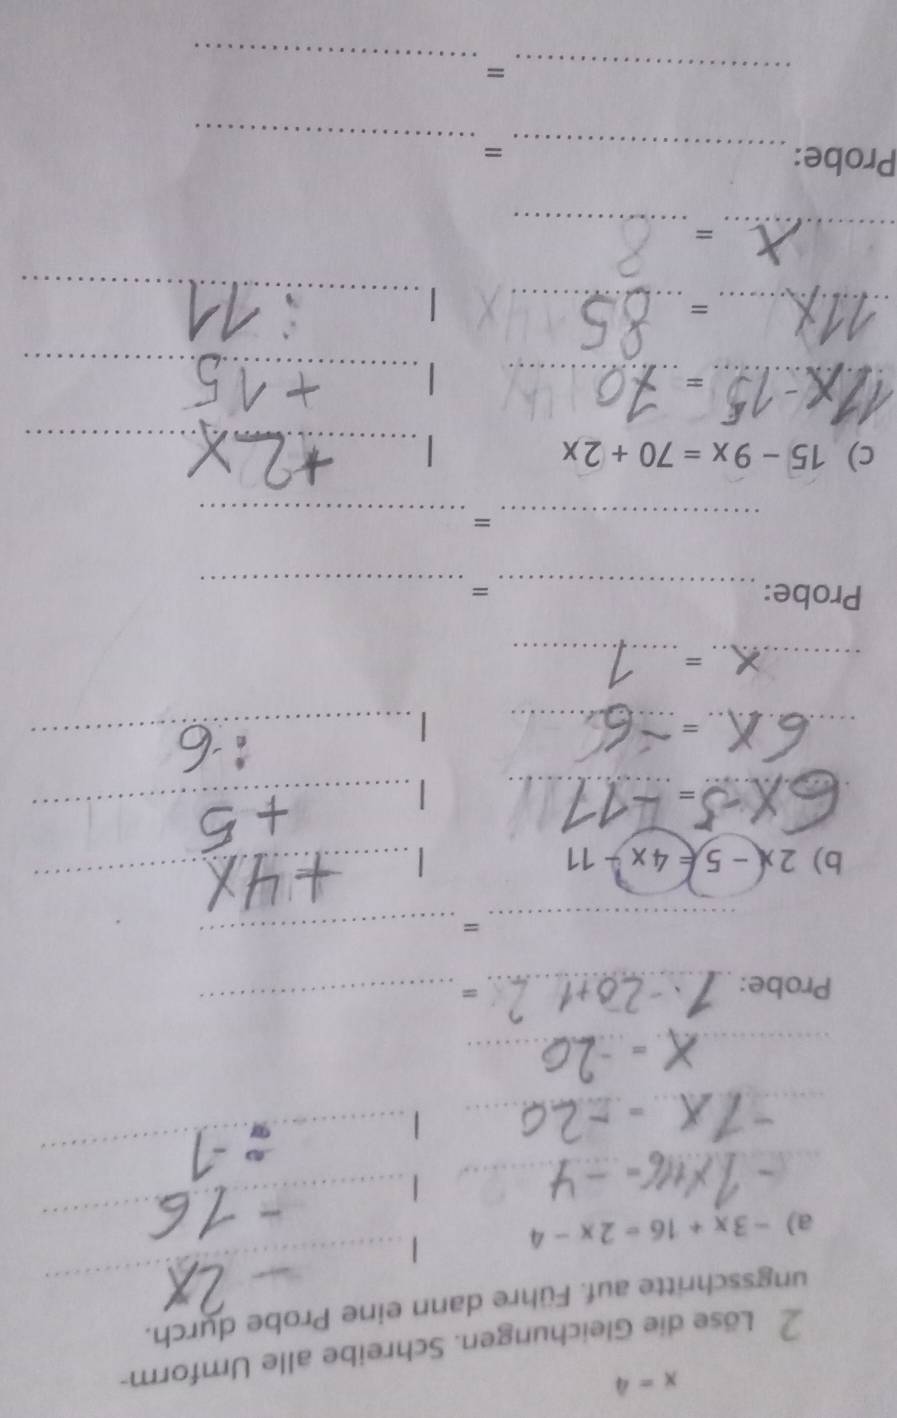 x = 4
2 Löse die Gleichungen. Schreibe alle Umform-
ungsschritte auf. Führe dann eine Probe durch.
a) -3x + 16 = 2x - 4 | - 2x
-1x+16 = -4 | - 16
-1x = -20 | : -1
x = -20
Probe: 1·-20+1 =
=
b) 2x - 5 = 4x - 11 | +4x
6x-5 = -11 | +5
6x = -6 | :6
x = 1
Probe: =
=
c) 15 - 9x = 70 + 2x | +2x
11x-15 = 70 | +15
11x = 85 | :11
x = 8
Probe: =
=